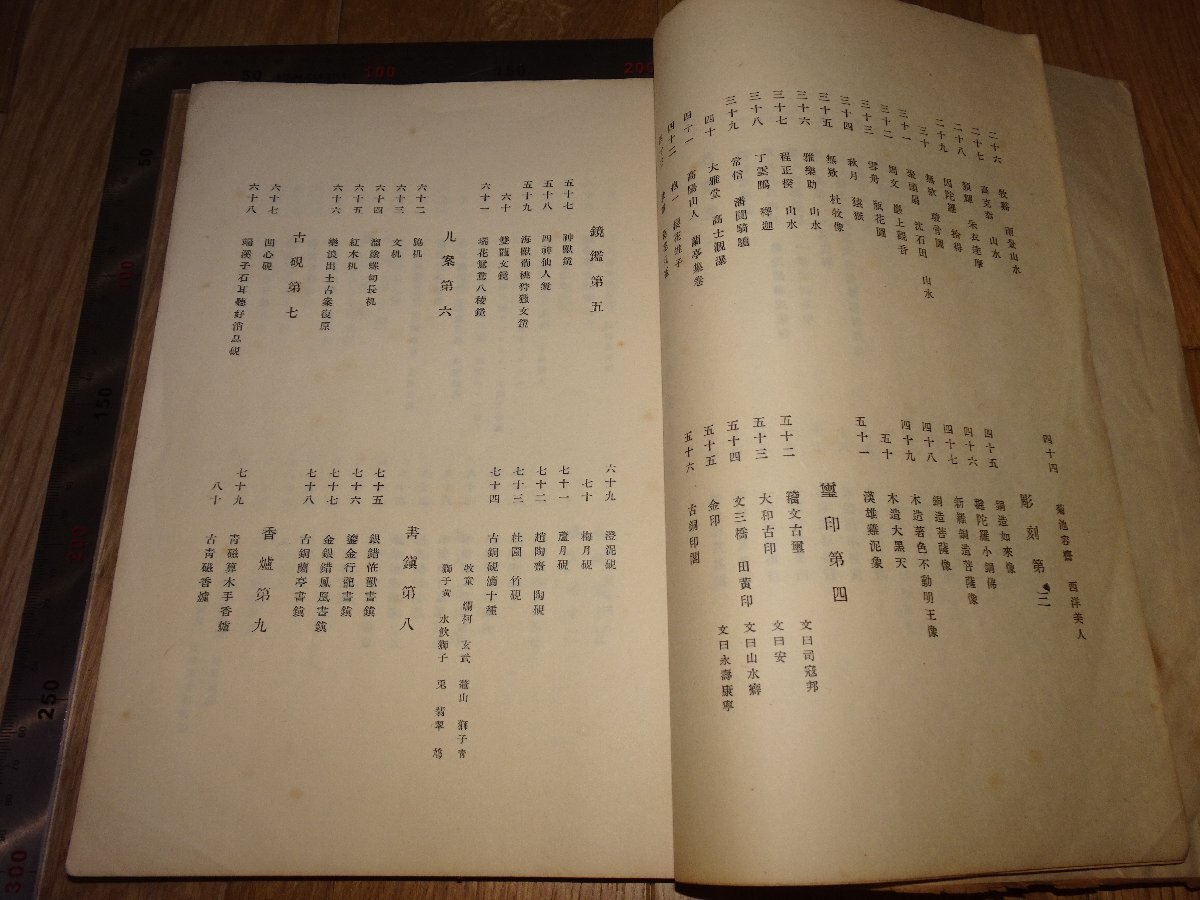 二十六 牧谿 雨景山水
二十七 高克恭 山水
二十八 顏輝 朱衣達摩
二十九 因陀羅 拾得
三十 無款
三十一 聚頭扇 沈石田 山水
三十二 周文 巖上觀音
三十三 雪舟 瓶花圖
三十四 秋月 猿猴
三十五 無款 杜牧像
三十六 雅樂助 山水
三十七 程正揆 山水
三十八 丁雲鵬 釋迦
三十九 常信 潘閬騎驢
四十 大雅堂 高士觀瀑
四十一 高陽山人 蘭亭集卷
四十二 抱一
四十四 菊池容齋 西洋美人
彫刻第三
四十五 銅造如來像
四十六 犍陀羅小銅佛
四十七 新羅銅造菩薩像
四十八 銅造菩薩像
四十九 木造著色不動明王像
五十 木造大黑天
五十一 漢雄雞泥象
璽印第四
五十二 籀文古璽 文曰司寇邦
五十三 大和古印 文曰安
五十四 文三橋 田黃印 文曰山水癖
五十五 金印 文曰永壽康寧
五十六 古銅印閣
鏡鑑第五
五十七 神獸鏡
五十八 四神仙人鏡
五十九 海獸葡桃狩獵文鏡
六十 雙龍文鏡
六十一 瑞花鴛鴦八稜鏡
几案第六
六十二 脇机
六十三 文机
六十四 溜塗螺鈿長机
六十五 紅木机
六十六 樂浪出土古案復原
古硯第七
六十七 凹心硯
六十八 端溪子石耳聽好消息硯
六十九 澄泥硯
七十 梅月硯
七十一 蘆月硯
七十二 趙陶齋 陶硯
七十三 杜園 竹硯
七十四 古銅硯滴十種
牧童 爛柯 玄武 蓬山 獅子青
獅子黃 水飮獅子 兎 翡翠 鳩
書鎭第八
七十五 銀錯怪獸書鎭
七十六 鎏金行龍書鎭
七十七 金銀錯鳳凰書鎭
七十八 古銅蘭亭書鎭
香爐第九
七十九 靑磁算木手香爐
八十 古靑磁香爐
50
100
150
200
50
100
150
200
250
300